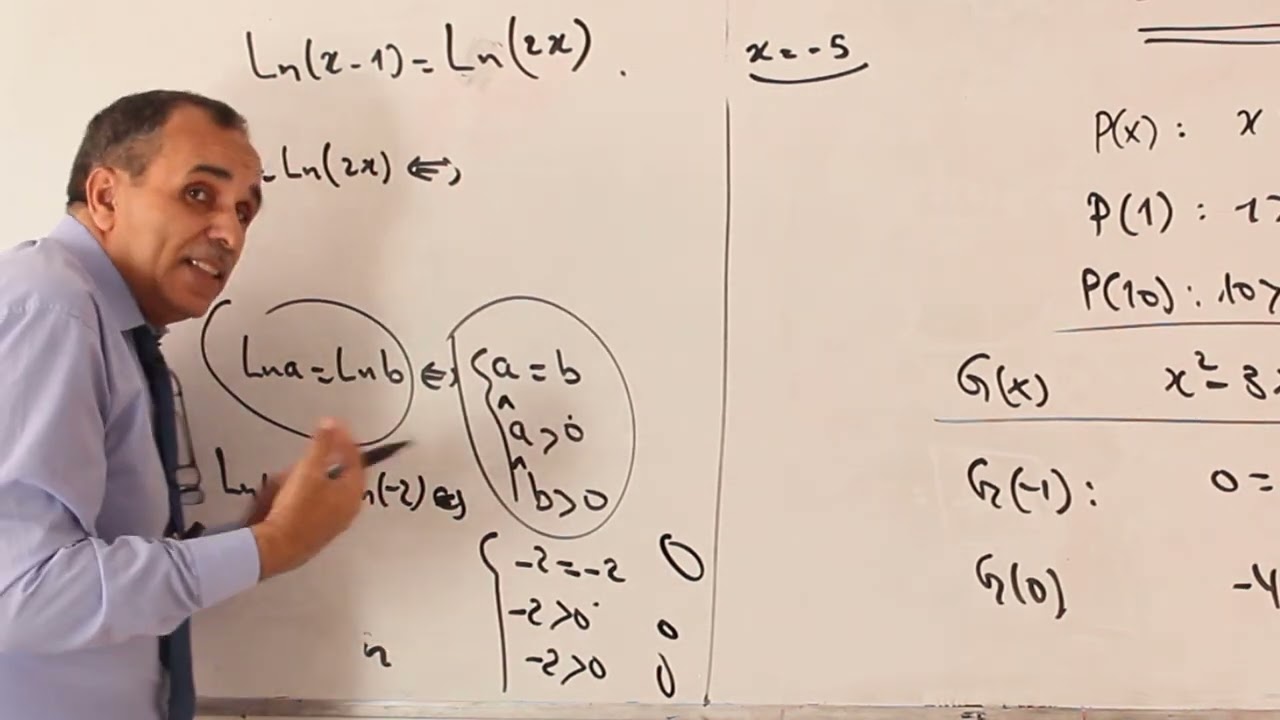 Ln(x-1)=Ln(2x).
=Ln(2x) ⇔
Ln a=Ln b ⇔ {a=b
∧
a>0
∧
b>0
Ln(-2) ⇔
{-2=-2 0
-2>0 0
-2>0 0
x=-5
P(x): x
P(1): 1>
P(10): 10>
G(x) x²-3
G(-1): 0=
G(0) -4